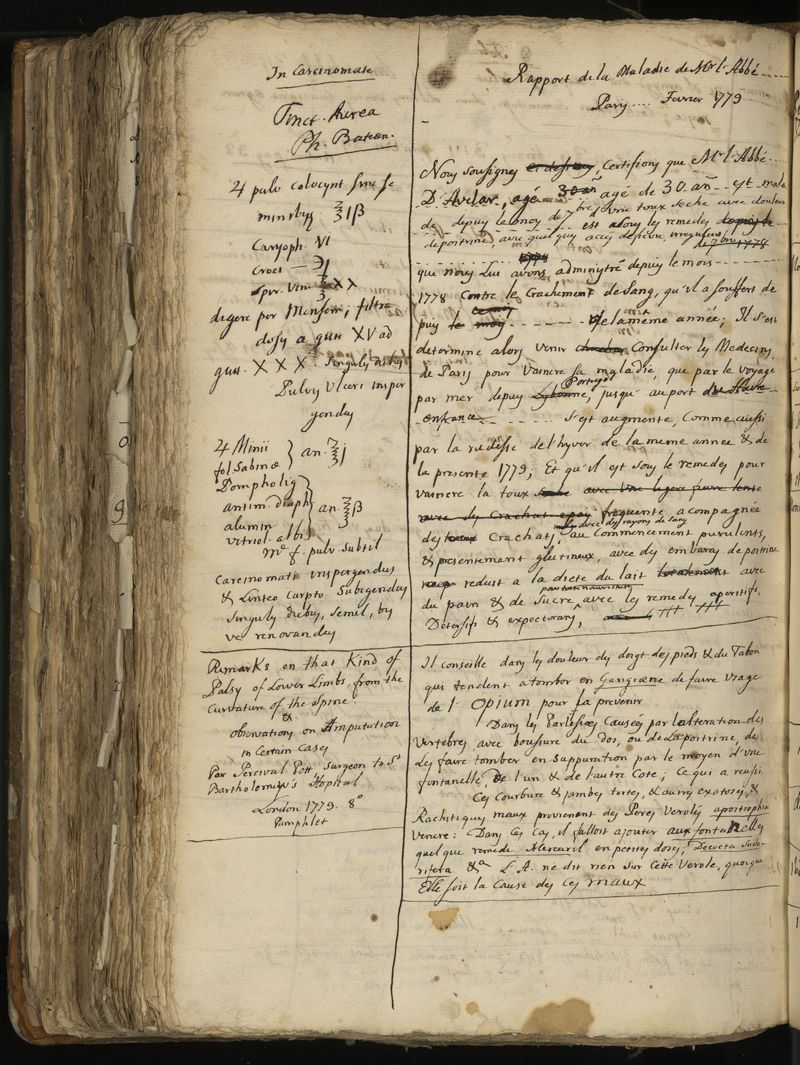 In Carcinomate
Tinct. Aurea
Ph. Batean.
♃ pulv colocynt sine se
minibus ℥iβ
Caryoph. VI
Croci — ℈j
spir. Vin ℥ XX
digere per Mensem; filtra
dosis a gutt XV ad
gutt. XXX. singulis diebus
Pulvis Ulceri insper
gendus
♃ Minii
fol Sabinæ } an. ℥j
Pompholig
antim. diaph } an. ℥β
alumin
vitriol. albi
m.e f. pulv. subtil
Carcinomati inspergendus
& Linteo Carpto Subigendus
singulis diebus, semel, bis
ve renovandus
Remarks on that Kind of
Palsy of Lower Limbs, from the
Curvature of the Spine.
&
Observations on Amputation
in Certain Cases
Par Percival Pott, Surgeon to St
Bartholomew's Hospital
London 1779. 8°
Pamphlet
Rapport de la Maladie de Mr l'Abbé
Parys .... Fevrier 1779
Nous sousignes Certifions que Mr l'Abbé
D'Avelar, agé 30 an agé de 30 añ est mala
de depuys le moy de 7bre d'une toux seche avec douleur
de poitrine, avec quelques acces de fievre, irreguliers
est alors les remedes
de 7bre 1778
1778
que nous Lui avons adminystré depuis le mois
1778 Contre le Crachement de Sang, qu'il a souffert de
puis le moy de la même année; Il s'est
determine alors venir Consulter les Medecins
de Parys pour vaincre sa maladie, que par le voyage
Portugal
par mer depuys Lysbonne, jusqu'au port du Havre
en france s'est augmente, Comme aussi
par la rudesse de l'hyver de la meme année & de
la presente 1779; Et qu'il est sous le remedes pour
vaincre la toux seche avec une legere fievre lente
avec des Crachats epais frequente acompagnée
avec des rayons de Sang
des Crachats, au Commencement purulents,
& presentement glutineux, avec des embaras de poitrine
reduit a la diete du lait avec
pour tout nourriture
du pain & de Sucre avec les remedes aperitifs,
Detersifs & expectorans,
Il conseille dans les douleur des doigt des pieds & du Talon
qui tendent a tomber en Gangræne de faire usage
de l'Opium pour la prevenir
Dans les Paralysies Causées par l'alteration des
Vertebres, avec bossure du dos, ou de la poitrine, de
les faire tomber en suppuration par le moyen d'une
fontanelle, de l'un & de l'autre Cote; Ce qui a reussi
Ces Courbure & jambes tortes, & autres exotoses, &
Rachitiques maux provienent des Peres Verolés apostrophia
venere: Dans ces cas, il falloit ajouter aux fontanelles
quelque remede Mercuriel en petites doses, Decocta Sudo-
rifera &a L.A. ne dit rien sur Cette Verole, quoique
Elle soit la Cause des ces maux